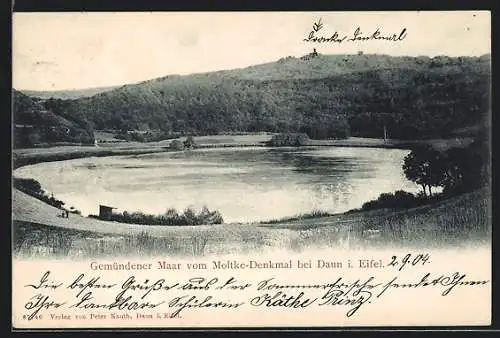 Dronke Denkmal
Gemündener Maar vom Moltke-Denkmal bei Daun i. Eifel.
2.9.04.
Die besten Grüße aus der Sommerfrische sendet Ihnen
Ihre dankbare Schülerin Käthe Prinz.
Verlag von Peter Knuth, Daun i. Eifel.